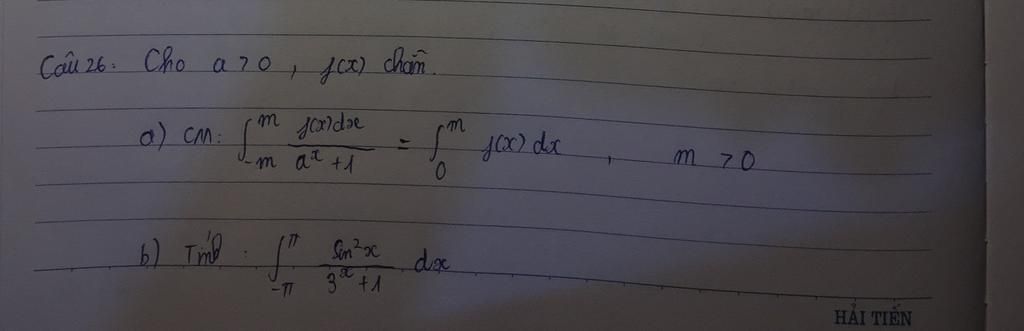 Câu 26: Cho a > 0, f(x) chẵn.
a) CM: ∫_{-m}^{m} f(x)dx / (a^x + 1) = ∫_0^m f(x) dx, m > 0
b) Tính: ∫_{-π}^{π} sin²x / (3^x + 1) dx
HẢI TIẾN